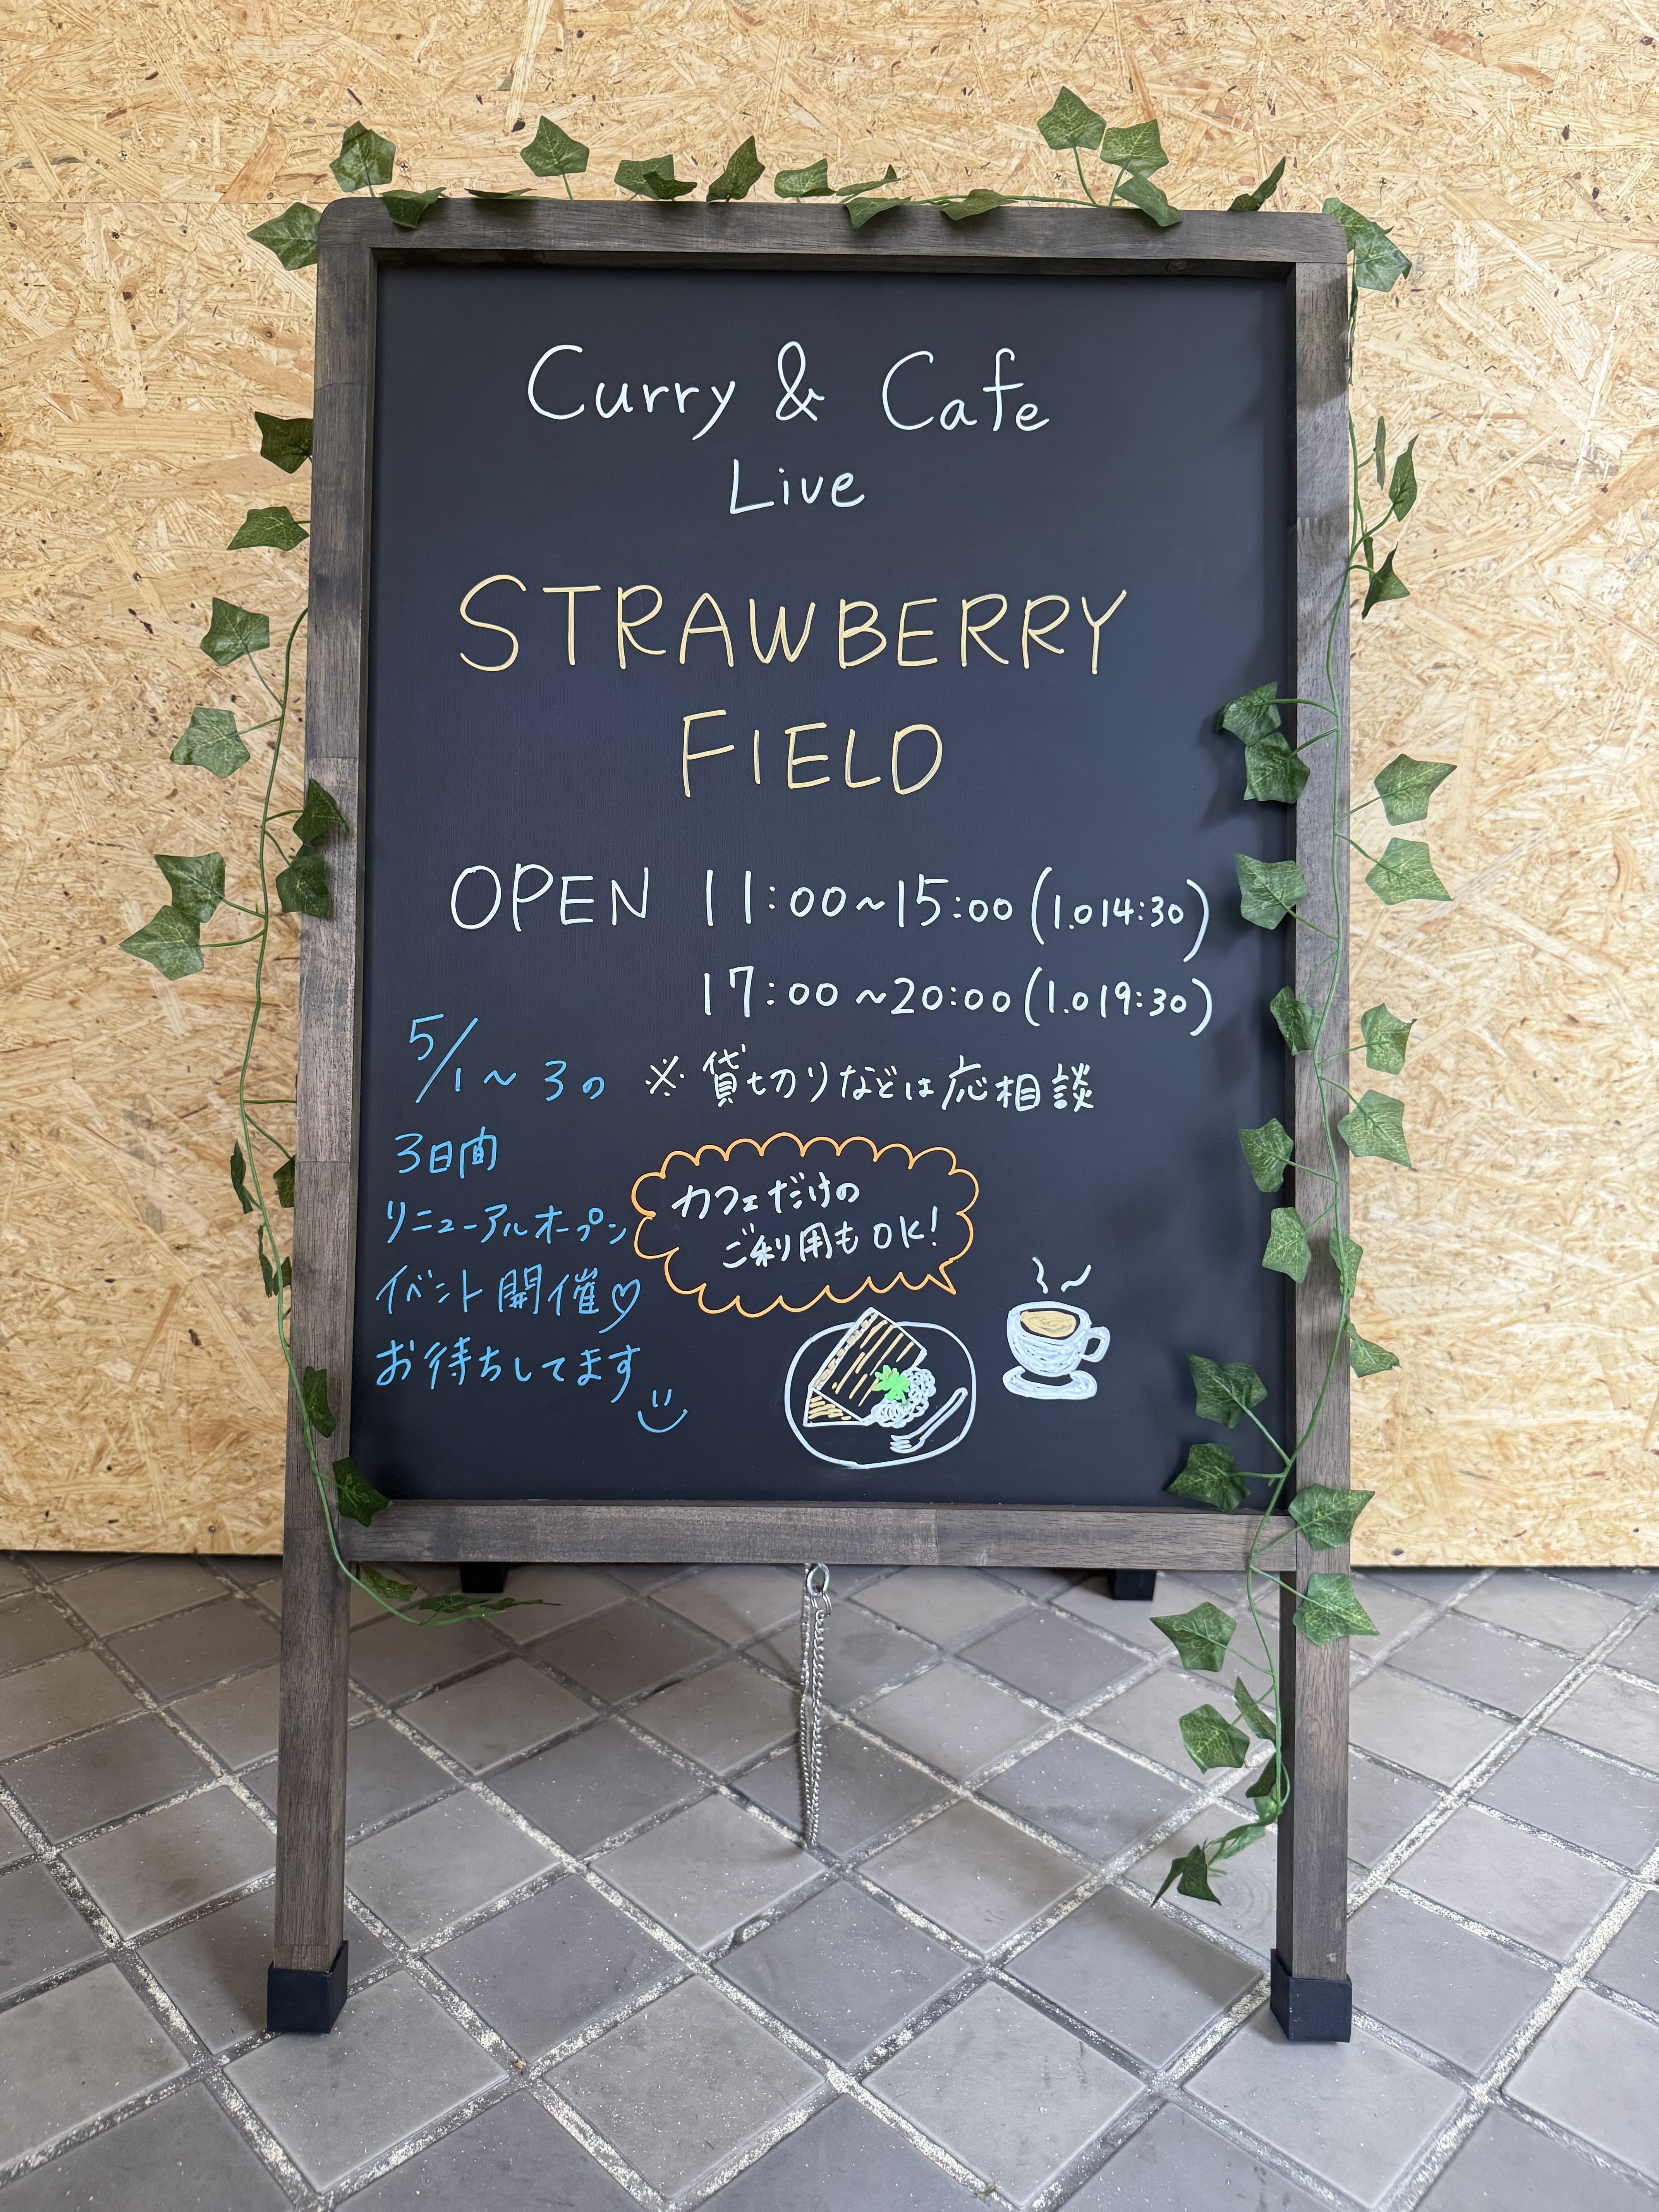 Curry & Cafe
Live
STRAWBERRY
FIELD
OPEN 11:00~15:00 (l.o 14:30)
17:00~20:00 (l.o 19:30)
※貸切りなどは応相談
5/1~3の
3日間
リニューアルオープン
イベント開催♡
お待ちしてます
カフェだけの
ご利用もOK!